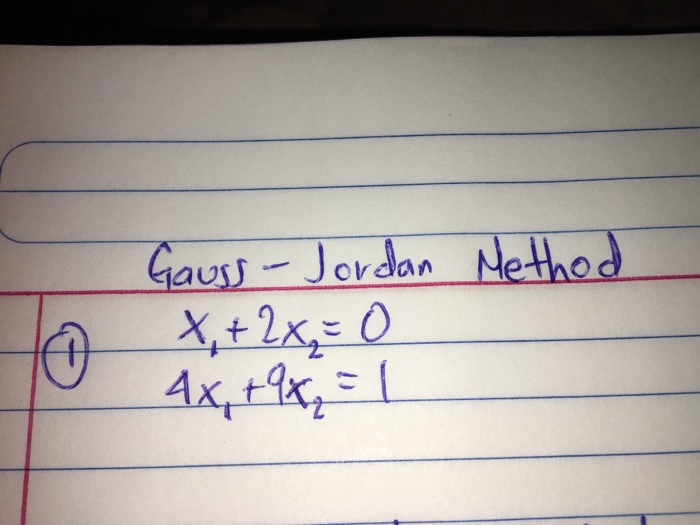 Gauss - Jordan Method
① x₁ + 2x₂ = 0
4x₁ + 9x₂ = 1